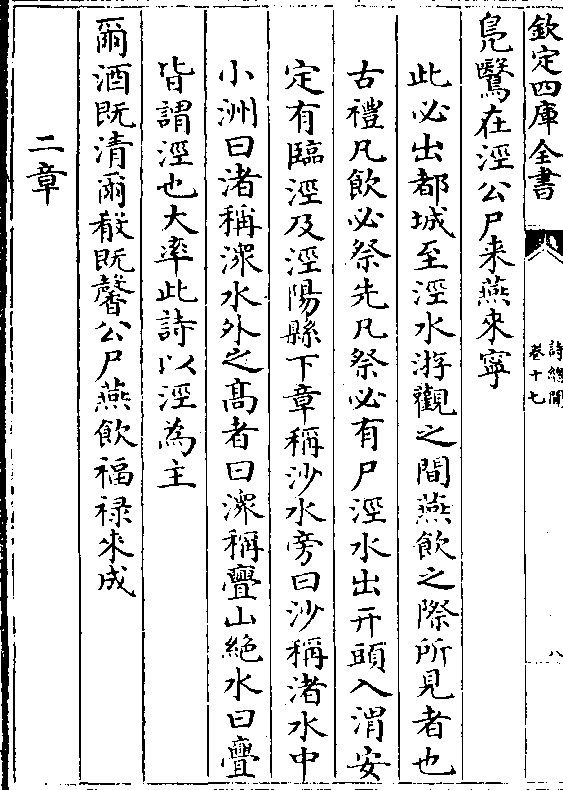 欽定四庫全書
詩總聞
卷十七
八
鳧鷖在涇公尸来燕來寧
此必出都城至涇水游觀之間燕飲之際所見者也
古禮凡飲必祭先凡祭必有尸涇水出幵頭入渭安
定有臨涇及涇陽縣下章稱沙水旁曰沙稱渚水中
小洲曰渚稱潀水外之髙者曰潀稱亹山絶水曰亹
皆謂涇也大率此詩以涇為主
爾酒既清爾殽既馨公尸燕飲福禄來成
二章